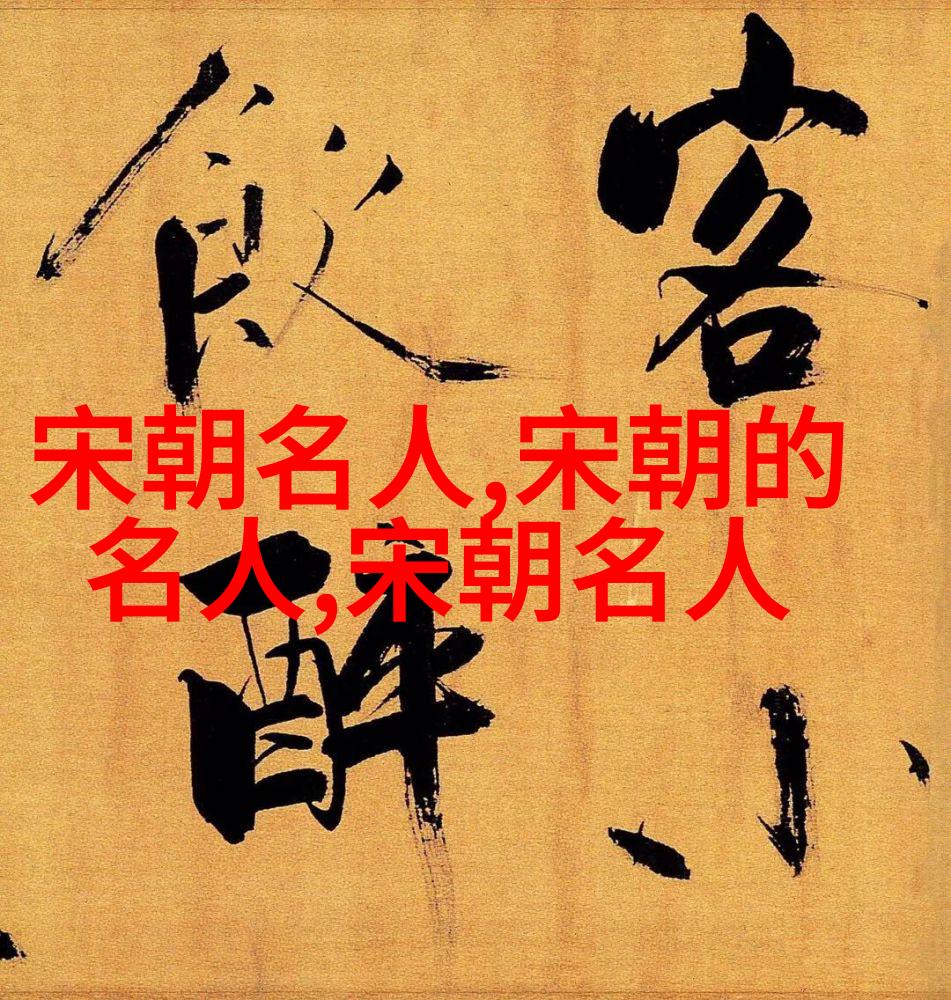 客小
飲醉
宋朝名人,宋朝的
名人,宋朝名人